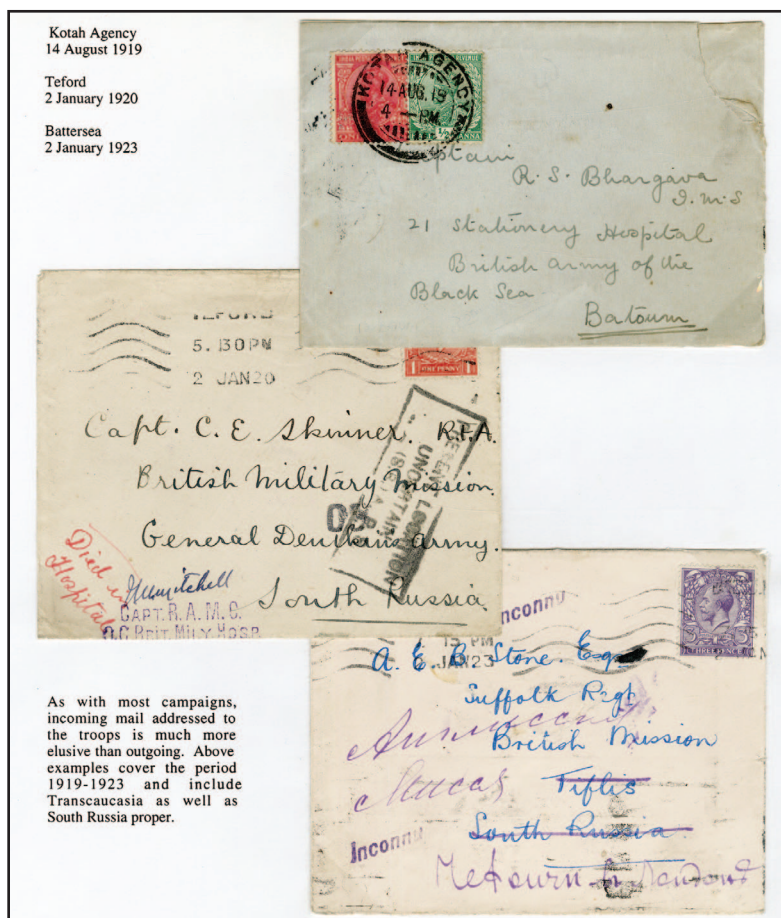 Kotah Agency
14 August 1919
Teford
2 January 1920
Battersea
2 January 1923
KOTAH AGENCY
14 AUG. 19
4 - PM
½ ANNA
Captain
R. S. Bhargava
I.M.S
21 Stationery Hospital
British army of the
Black Sea
Batoum
5. 30 PM
2 JAN 20
1 ONE PENNY 1
Capt. C. E. Skinner. R.F.A.
British Military Mission.
General Denikins army.
South Russia.
PRESENT LOCATION
UNCERTAIN
Died in
Hospital
JMmitchell
CAPT. R. A. M. C.
O.C. BRIT. MILY. HOSP.
Inconnu
15 PM
JAN 23
THREE PENCE
A. E. B Stone. Esq
Suffolk Regt
British Mission
Tiflis
South Russia
Inconnu
As with most campaigns,
incoming mail addressed to
the troops is much more
elusive than outgoing. Above
examples cover the period
1919-1923 and include
Transcaucasia as well as
South Russia proper.